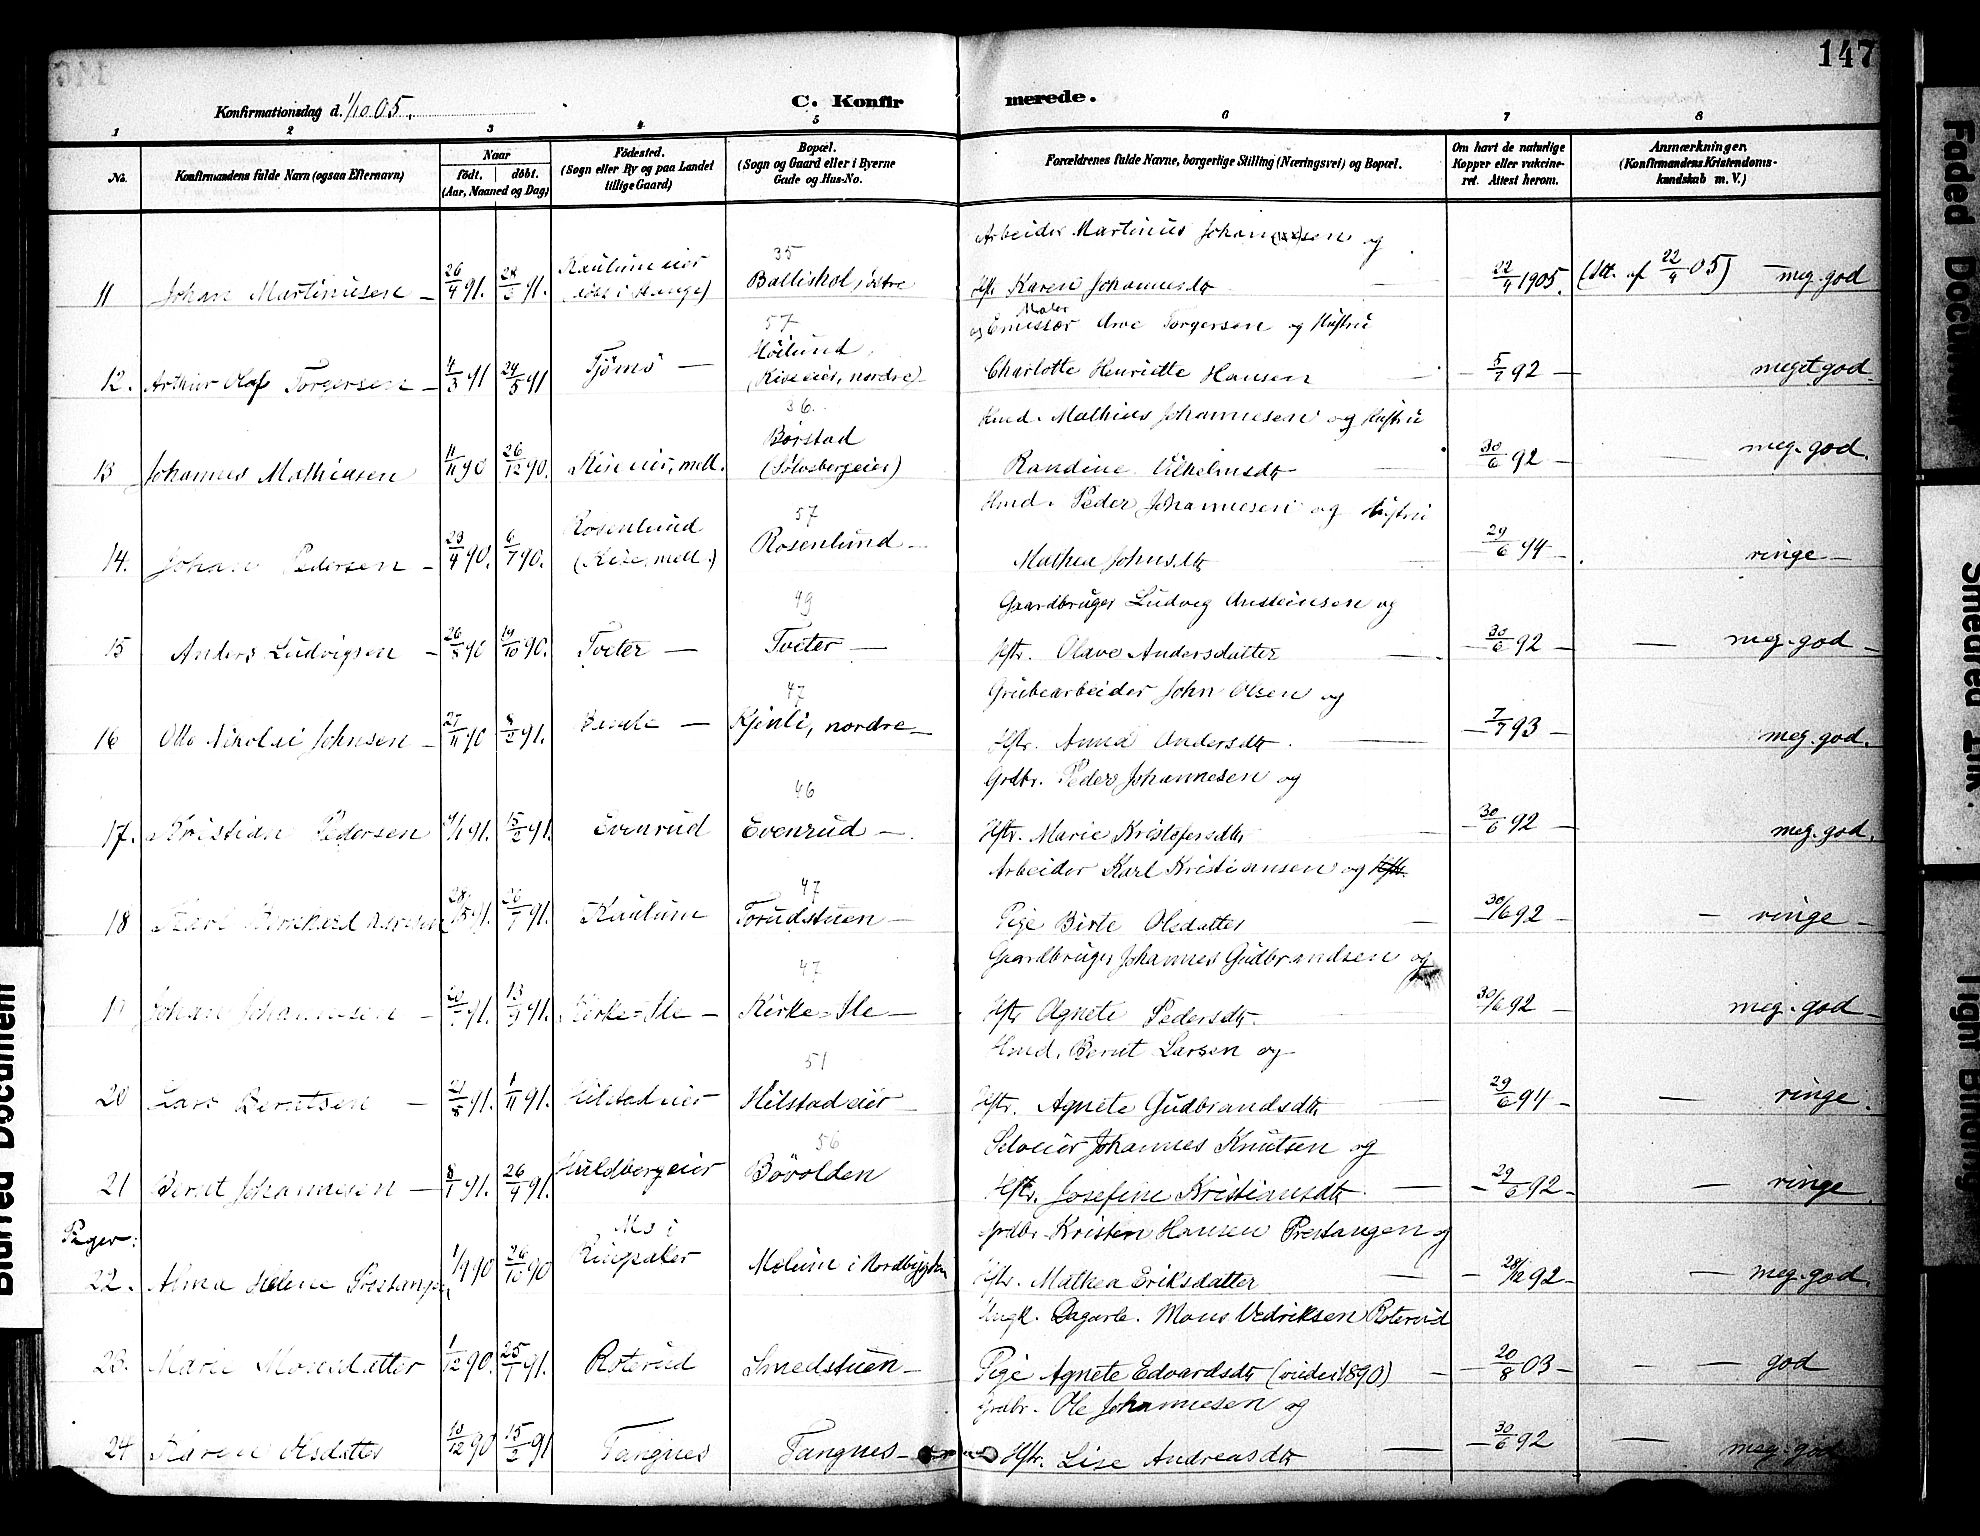 147
Konfirmationsdag d. 1/10 05.
C. Konfirmerede.
1 2 3 4 5 6 7 8
No.
Konfirmandens fulde Navn (ogsaa Efternavn)
Naar
født. døbt.
(Aar, Maaned og Dag)
Fødested.
(Sogn eller By og paa Landet
tillige Gaard)
Bopæl.
(Sogn og Gaard eller i Byerne
Gade og Hus-No.
Forældrenes fulde Navne, borgerlige Stilling (Næringsvei) og Bopæl.
Om havt de naturlige
Kopper eller vakcine-
ret. Attest herom.
Anmærkninger.
(Konfirmandens Kristendoms-
kundskab m. V.)
35
Arbeider Martinius Johannesen og
11 Johan Martiniusen 26/4 91. Kaulum eier Balliskol, østre Hstr. Karen Johannesdtr 22/4 1905. (Att. af 22/4 05) meg. god
57
Maler
og Emissær Arve Torgersen og Hustru
12. Arthur Olaf Torgersen 4/3 91 24/5 91 Tjømø Høilund, (Rise eier, nordre) Charlotte Henriette Hansen 5/7 92 meget god.
36.
Hmd. Mathias Johannesen og Hustru
13 Johannes Mathiasen 11/11 90 26/12 90. Rise eier, mell. Børstad (Sølvsbergeier) Randine Vilhelmsdtr 30/6 92 meg. god.
57
Hmd. Peder Johannesen og Hustru
14. Johan Pedersen 23/4 90. 6/7 90. Rosenlund (Rise, mell.) Rosenlund Mathea Johnsdtr 29/6 94 ringe
49
Gaardbruger Ludvig Austeinsen og
15 Anders Ludvigsen 26/8 90 19/10 90. Tveter Tveter Hstr. Olave Andersdatter 30/6 92 meg. god
47
Grubearbeider John Olsen og
16 Otto Nikolai Johnsen 27/11 90 8/2 91. Kjenli, nordre Hstr. Anna Andersdtr. 7/7 93 meg. god.
46
Grdbr. Peder Johannesen og
17. Kristian Pedersen 4/1 91. 15/2 91. Evenrud Evenrud Hstr. Marie Kristofersdtr 30/6 92 meg. god.
47
Arbeider Karl Kristiansen og Hstr.
18 Karl Bernhard Karlsen 26/7 91. Kaulum Torudstuen Pige Birte Olsdatter 30/6 92 ringe
47
Gaardbruger Johannes Gudbrandsen og
19 Johan Johannesen Kirke=Sle Kirke=Sle Hstr Agnete Pedersdtr. 30/6 92 meg. god
51
Hmd. Bernt Larsen og
20 Lars Berntsen 27/8 91. 1/11 91. Hilstad eier Hilstad eier Hstr. Agnete Gudbrandsdtr 29/6 94 ringe.
56
Selveier Johannes Knutsen og
21 Bernt Johannesen 8/1 91. 26/4 91. Huldbergeier Bøvolden Hstr. Josefine Kristiansdtr. 29/6 92 ringe
Piger:
Grdbr. Kristen Hansen Prestangen og
22. Alma Helene Prestangen 1/9 90 26/10 90 Mo i Ringsaker Molum i Nordbygden Hstr. Mathea Eriksdatter 29/12 92 meg. god.
Ungk. Dagarb. Mons Vedriksen Roterud
23. Marie Monsdatter 1/12 90. 25/1 91. Roterud Smedstuen Pige Agnete Edvardsdtr (viede 1890) 20/8 03 god
Grdbr. Ole Johannesen og
24 Karen Olsdatter 10/12 90 15/2 91 Tangnes Tangnes Hstr. Lise Andreasdtr 30/6 92 meg. god
Faded Document
Smeared Ink
Tight Binding
Blurred Document